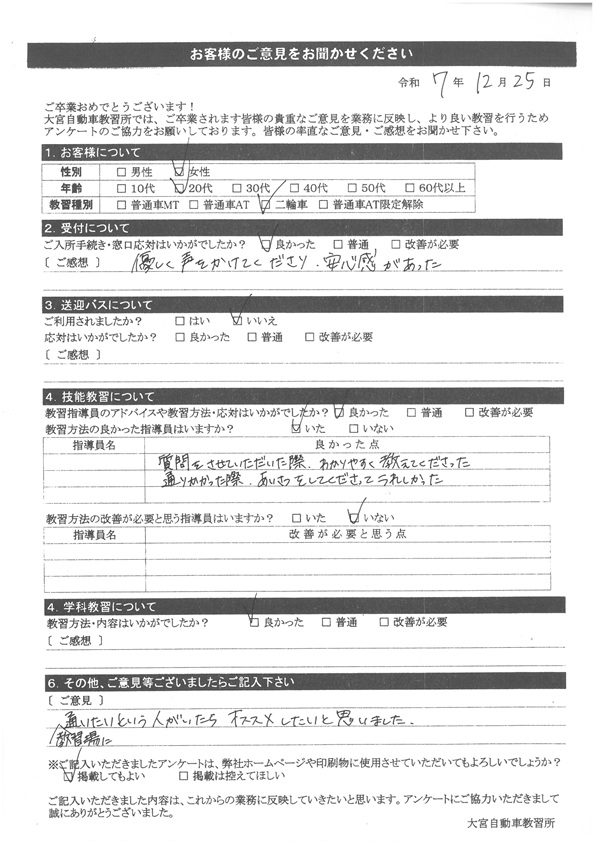 お客様のご意見をお聞かせください
令和 7 年 12 月 25 日
ご卒業おめでとうございます！
大宮自動車教習所では、ご卒業されます皆様の貴重なご意見を業務に反映し、より良い教習を行うため
アンケートのご協力をお願いしております。皆様の率直なご意見・ご感想をお聞かせ下さい。
1. お客様について
性別 □ 男性 ☑ 女性
年齢 □ 10代 ☑ 20代 □ 30代 □ 40代 □ 50代 □ 60代以上
教習種別 □ 普通車MT □ 普通車AT ☑ 二輪車 □ 普通車AT限定解除
2. 受付について
ご入所手続き・窓口応対はいかがでしたか？ ☑ 良かった □ 普通 □ 改善が必要
〔 ご感想 〕 優しく声をかけてくださり、安心感があった
3. 送迎バスについて
ご利用されましたか？ □ はい ☑ いいえ
応対はいかがでしたか？ □ 良かった □ 普通 □ 改善が必要
〔 ご感想 〕
4. 技能教習について
教習指導員のアドバイスや教習方法・応対はいかがでしたか？ ☑ 良かった □ 普通 □ 改善が必要
教習方法の良かった指導員はいますか？ ☑ いた □ いない
指導員名 良かった点
質問をさせていただいた際、わかりやすく教えてくださった
通りかかった際、あいさつをしてくださってうれしかった
教習方法の改善が必要と思う指導員はいますか？ □ いた ☑ いない
指導員名 改善が必要と思う点
4. 学科教習について
教習方法・内容はいかがでしたか？ ☑ 良かった □ 普通 □ 改善が必要
〔 ご感想 〕
6. その他、ご意見等ございましたらご記入下さい
〔 ご意見 〕
通いたいという人がいたら オススメしたいと思いました．
教習場に
※ご記入いただきましたアンケートは、弊社ホームページや印刷物に使用させていただいてもよろしいでしょうか？
☑ 掲載してもよい □ 掲載は控えてほしい
ご記入いただきました内容は、これからの業務に反映していきたいと思います。アンケートにご協力いただきまして
誠にありがとうございました。
大宮自動車教習所